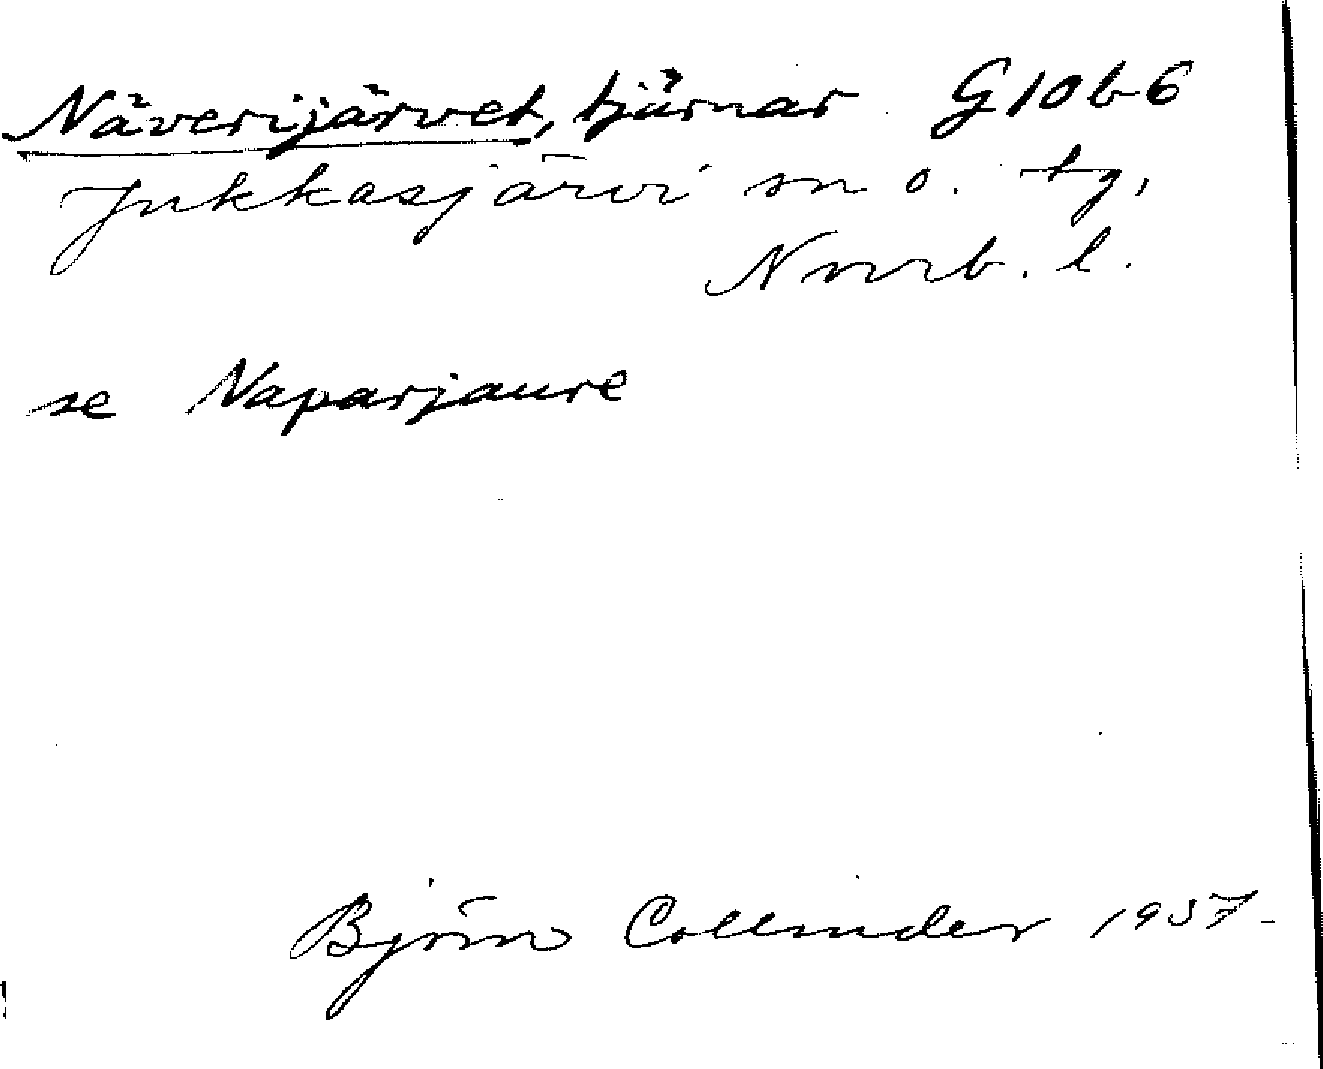 Näverijärvet, tjärnar G10b6
Jukkasjärvi sn o. tg,
Norrb. l.
se Naparjaure
Björn Collinder 1957